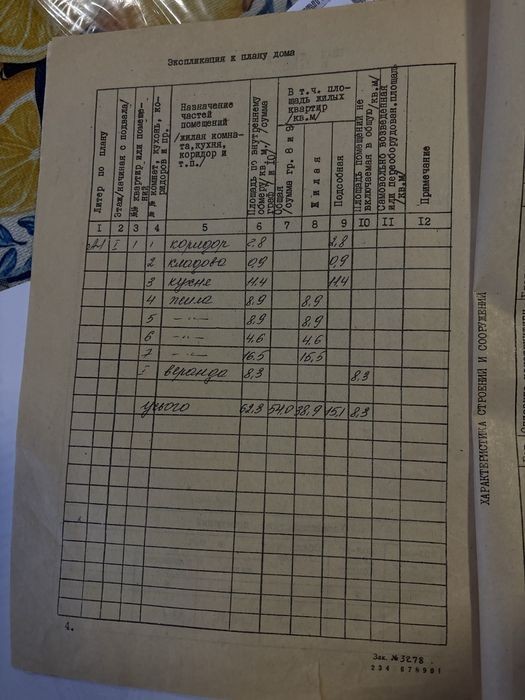 Экспликация к плану дома
Литер по плану
Этаж/начиная с подвала/
№№ квартир или помещений
№№ комнат, кухонь, коридоров и пр.
Назначение частей помещений /жилая комната, кухня, коридор и т.п./
Площадь по внутреннему обмеру/кв.м./ /сумма граф 7 и 10/
В т.ч. площадь жилых квартир /кв.м/
Общая /сумма гр. 8 и 9/
Жилая
Подсобная
Площадь помещений не включаемая в общую/кв.м/
Самовольно возведенная или переоборудован.площадь /кв.м/
Примечание
I 2 3 4 5 6 7 8 9 10 II 12
А-1 I 1 1 коридор 2,8 2,8
2 кладова 0,9 0,9
3 кухне 11.4 11.4
4 жила 8,9 8,9
5 –"– 8,9 8,9
6 –"– 4.6 4.6
7 –"– 16.5 16,5
I веранда 8,3 8,3
усього 62.3 54.0 38,9 15,1 8,3
4.
Зак. № 3278
2 3 4 6 7 8 9 0 1
ХАРАКТЕРИСТИКА СТРОЕНИЙ И СООРУЖЕНИЙ